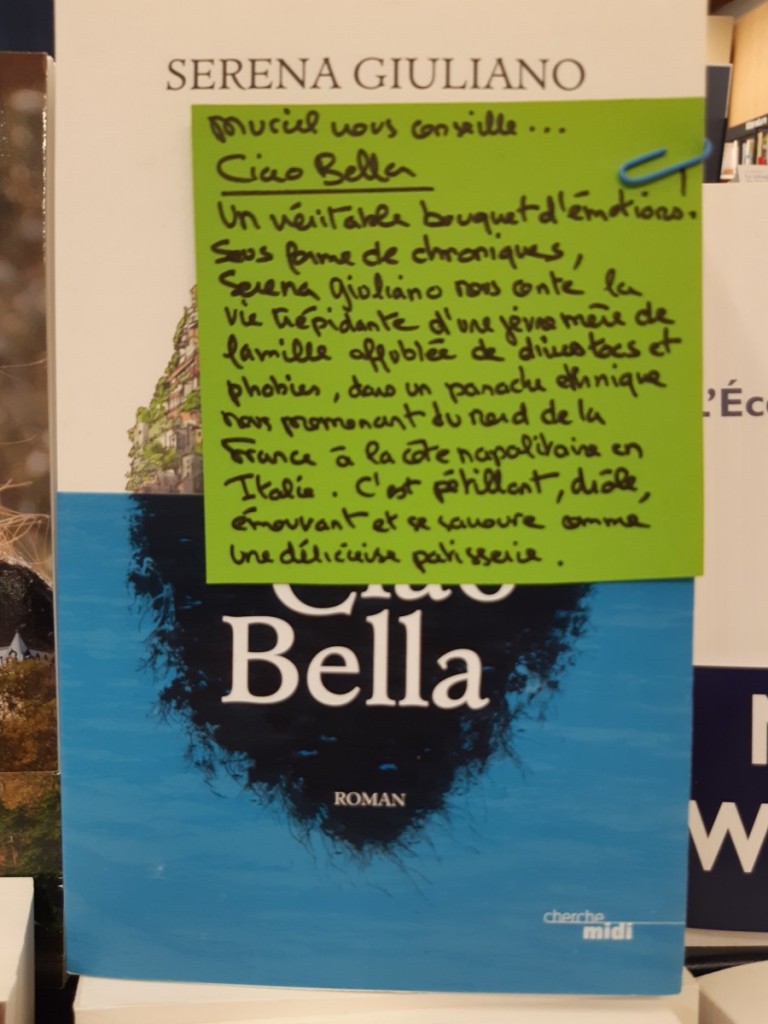 SERENA GIULIANO
Muriel nous conseille...
Ciao Bella
Un véritable bouquet d'émotions!
Sous forme de chroniques,
Serena Giuliano nous conte la
vie trépidante d'une jeune mère de
famille affublée de divers tocs et
phobies, dans un panache ethnique
nous promenant du nord de la
France à la côte napolitaine en
Italie. C'est pétillant, drôle,
émouvant et se savoure comme
une délicieuse patisserie.
Ciao
Bella
ROMAN
cherche
midi
L'Éco
W